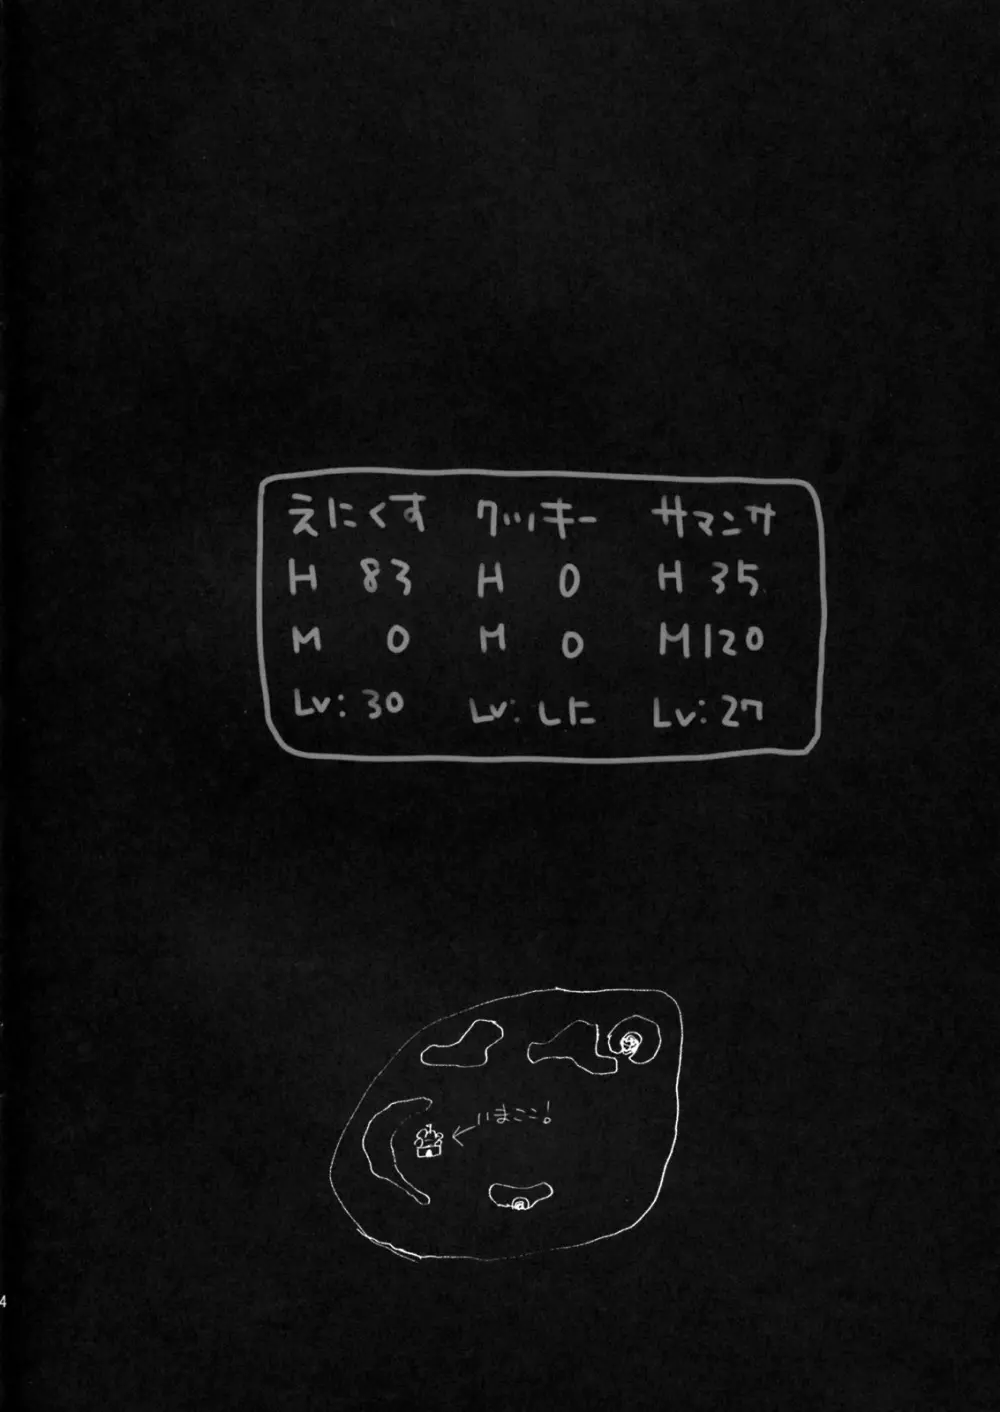 えにくす クッキー サマンサ
H 83 H 0 H 35
M 0 M 0 M120
Lv: 30 Lv: した Lv: 27
いまここ!
4